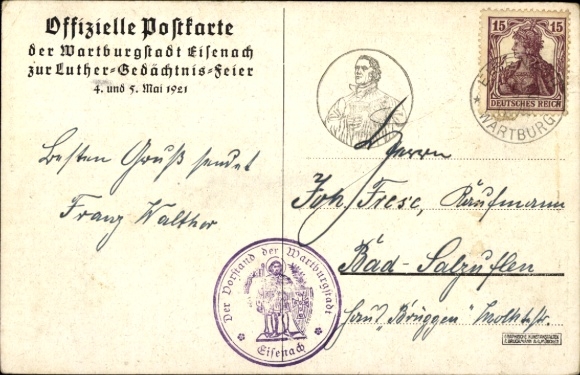 Offizielle Postkarte
der Wartburgstadt Eisenach
zur Luther-Gedächtnis-Feier
4. und 5. Mai 1921
Besten Gruß sendet
Franz Walther
15 15
DEUTSCHES REICH
WARTBURG
Herrn
Joh. Frese, Kaufmann
Bad-Salzuflen
Haus "Brüggen" Moltkestr.
Der Vorstand der Wartburgstadt
Eisenach